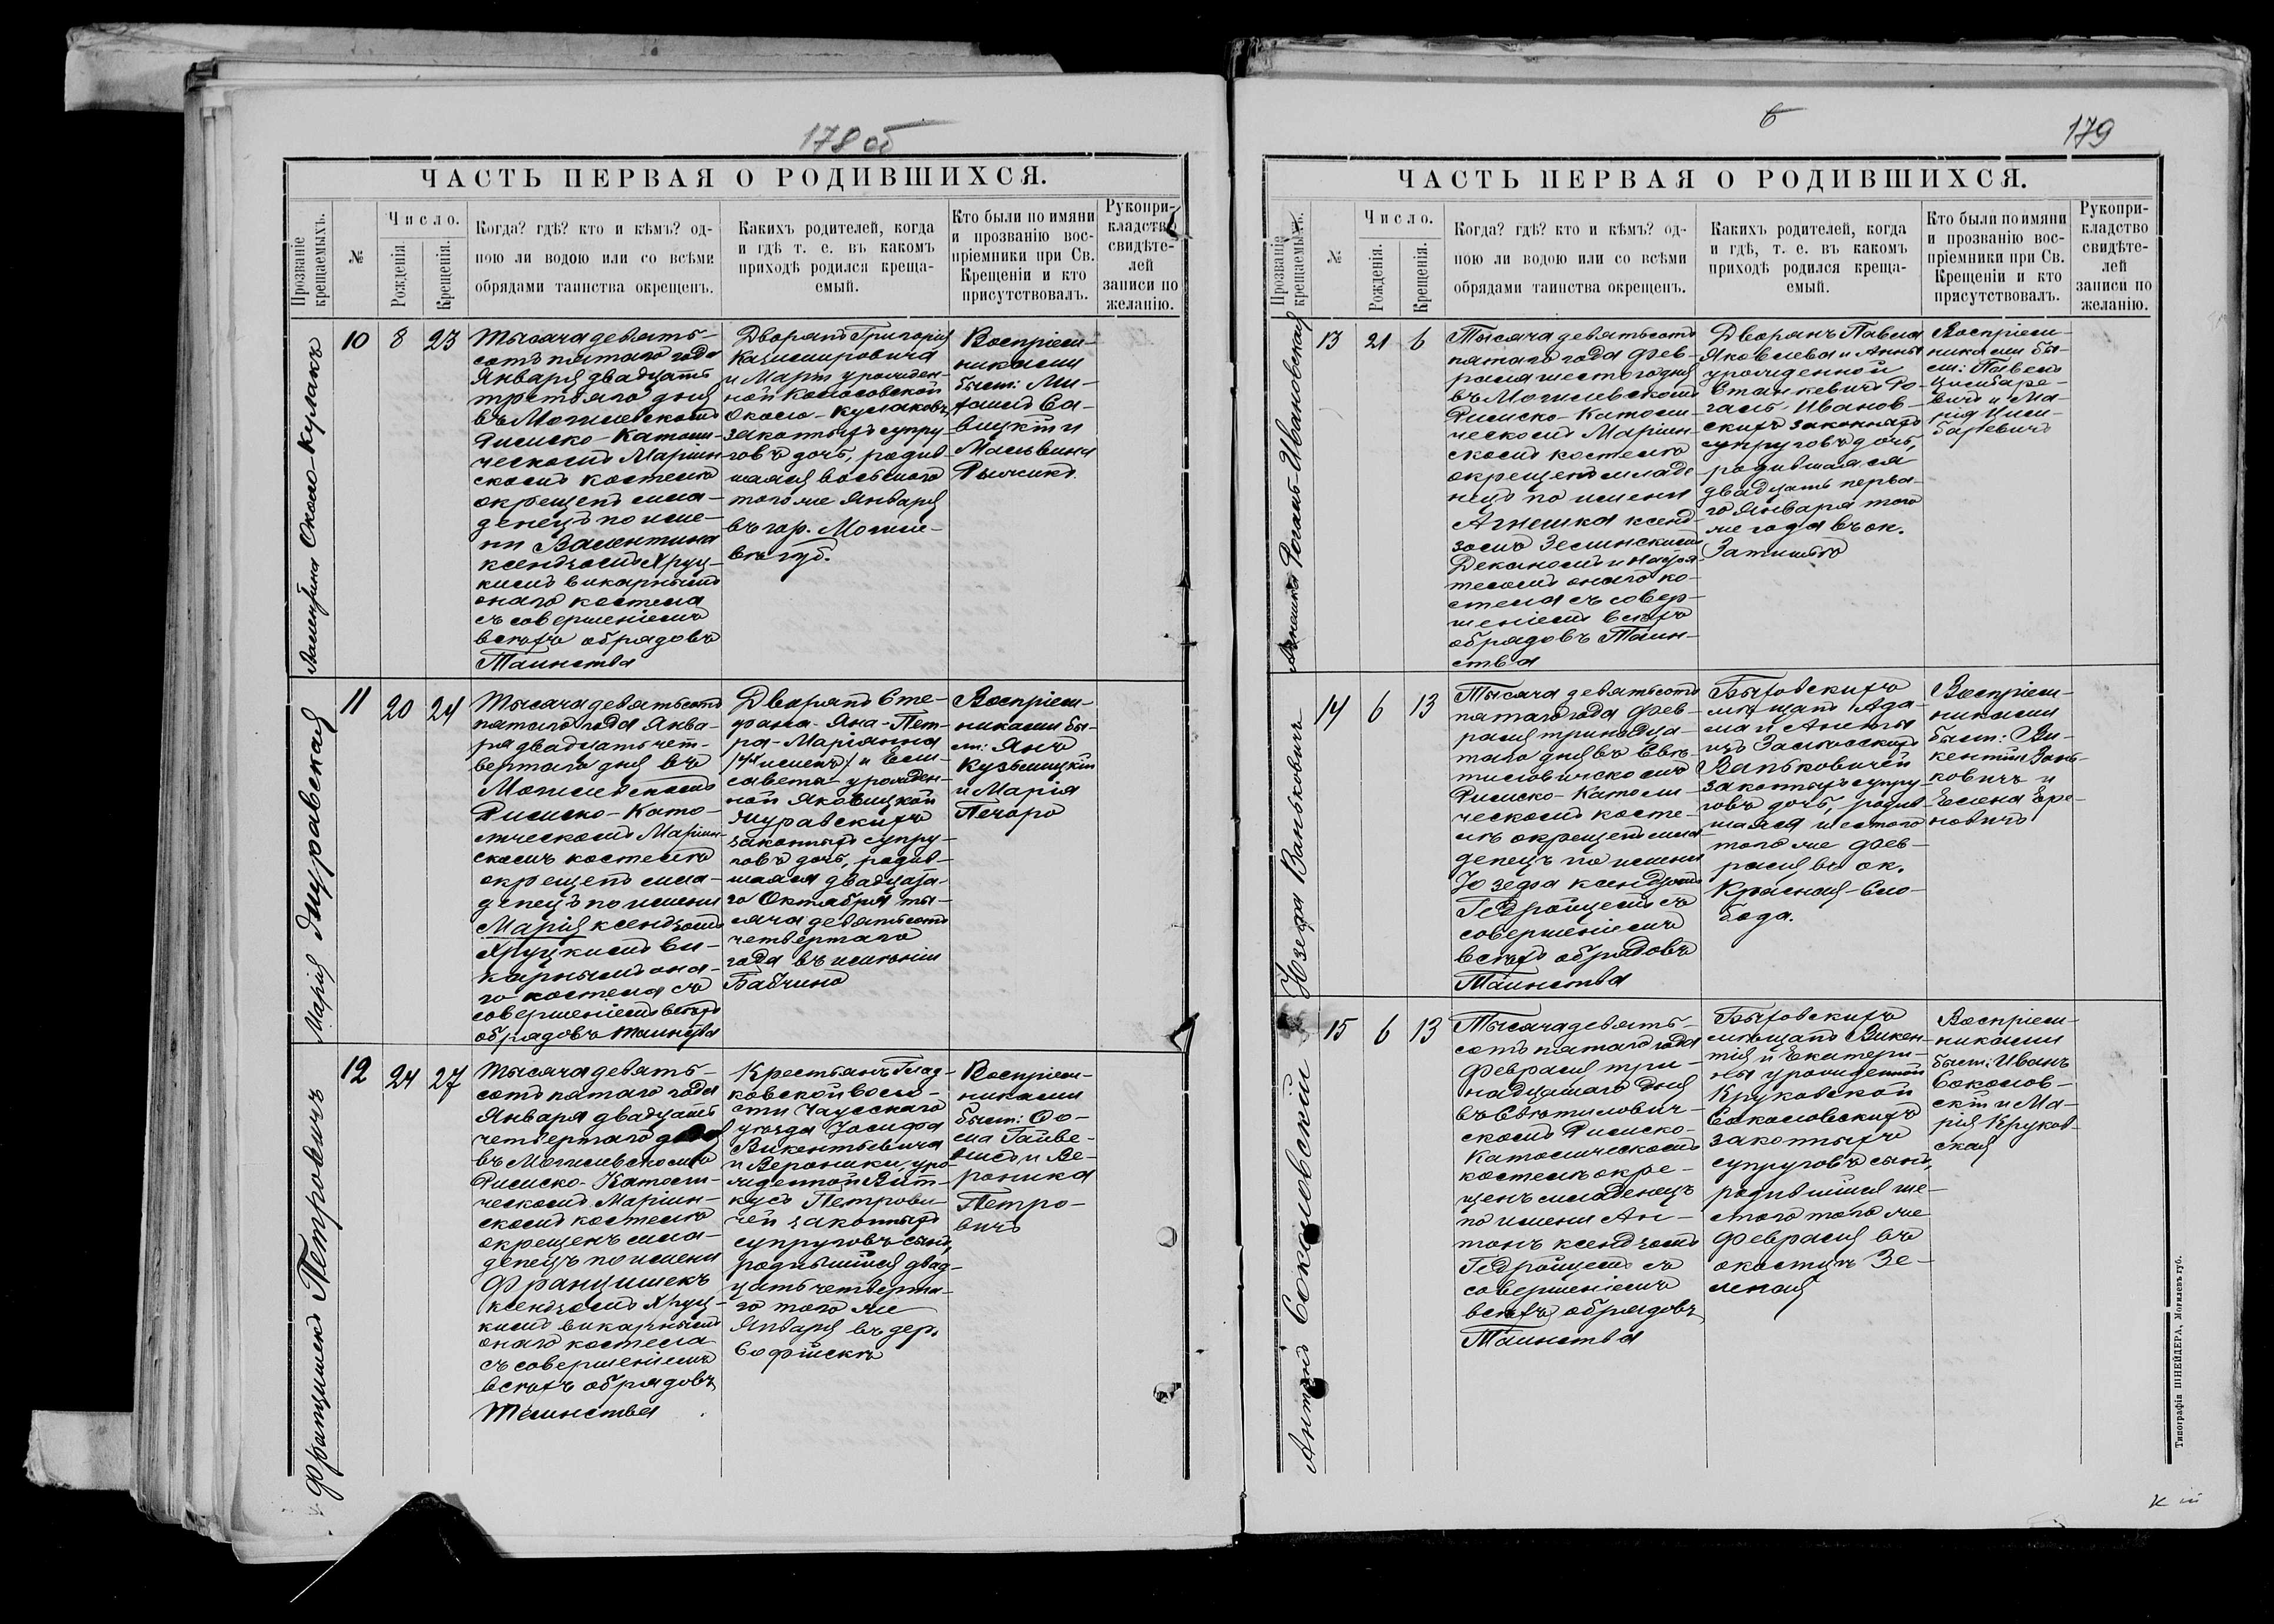 178 об
ЧАСТЬ ПЕРВАЯ О РОДИВШИХСЯ.
Прозваніе крещаемыхъ.
№
Число.
Рожденія.
Крещенія.
Когда? гдѣ? кто и кѣмъ? од-
ною ли водою или со всѣми
обрядами таинства окрещенъ.
Какихъ родителей, когда
и гдѣ т. е. въ какомъ
приходѣ родился креща-
емый.
Кто были по имяни
и прозванію вос-
пріемники при Св.
Крещеніи и кто
присутствовалъ.
Рукопри-
кладство
свидѣте-
лей
записи по
желанію.
Валентина Около-Кулакъ
10
8
23
Тысяча девять-
сотъ пятаго года
Января двадцать
третьяго дня
въ Могилевскомъ
Римско-Католи-
ческомъ Маріин-
скомъ костелѣ
окрещенъ мла-
денецъ по име-
ни Валентина
ксендзомъ Хруц-
кимъ викарнымъ
онаго костела
съ совершеніемъ
всѣхъ обрядовъ
Таинства
Дворянъ Григорія
Казимировича
и Маріи урожден-
ной Колосовской
Около-Кулаковъ
законныхъ супру-
говъ дочь, родив-
шаяся восьмого
того же Января
въ гор. Могиле-
вѣ губ.
Воспріем-
никами
были: Ми-
хаилъ Са-
вицкій и
Мальвина
Рымша.
Марія Журавская
11
20
24
Тысяча девятьсотъ
пятаго года Янва-
ря двадцать чет-
вертаго дня въ
Могилевскомъ
Римско-Като-
лическомъ Маріин-
скомъ костелѣ
окрещенъ мла-
денецъ по имени
Марія ксендзомъ
Хруцкимъ ви-
карнымъ она-
го костела съ
совершеніемъ всѣхъ
обрядовъ таинства
Дворянъ Сте-
фана-Яна-Пет-
ра-Маріанна
/4хъ именъ/ и Ели-
савета урожден-
ной Яковицкой
Журавскихъ
законныхъ супру-
говъ дочь, родив-
шаяся двадцата-
го Октября ты-
сяча девятьсотъ
четвертаго
года въ имѣніи
Бабчино
Воспріем-
никами бы-
ли: Янъ
Кузьмицкій
и Марія
Печоро
Францишекъ Петровичъ
12
24
27
Тысяча девять-
сотъ пятаго года
Января двадцать
четвертаго дня
въ Могилевскомъ
Римско-Католи-
ческомъ Маріин-
скомъ костелѣ
окрещенъ мла-
денецъ по имени
Францишекъ
ксендзомъ Хруц-
кимъ викарнымъ
онаго костела
съ совершеніемъ
всѣхъ обрядовъ
Таинства
Крестьянъ Глад-
ковской воло-
сти Чаусскаго
уѣзда Іосифа
Викентьевича
и Вероники, уро-
жденной Вит-
кусъ Петрови-
чей законныхъ
супруговъ сынъ,
родившійся двад-
цать четверта-
го того же
Января въ дер.
Софійскѣ
Воспріем-
никами
были: Ѳо-
ма Гайве-
лисъ и Ве-
роника
Петро-
вичъ
6
179
ЧАСТЬ ПЕРВАЯ О РОДИВШИХСЯ.
Прозваніе крещаемыхъ.
№
Число.
Рожденія.
Крещенія.
Когда? гдѣ? кто и кѣмъ? од-
ною ли водою или со всѣми
обрядами таинства окрещенъ.
Какихъ родителей, когда
и гдѣ, т. е. въ какомъ
приходѣ родился креща-
емый.
Кто были по имяни
и прозванію вос-
пріемники при Св.
Крещеніи и кто
присутствовалъ.
Рукопри-
кладство
свидѣте-
лей
записи по
желанію.
Агнешка Рогаль-Ивановская
13
21
6
Тысяча девятьсотъ
пятаго года Фев-
раля шестого дня
въ Могилевскомъ
Римско-Католи-
ческомъ Маріин-
скомъ костелѣ
окрещенъ младе-
нецъ по имени
Агнешка ксенд-
зомъ Зелинскимъ
Деканомъ и настоя-
телемъ онаго ко-
стела съ совер-
шеніемъ всѣхъ
обрядовъ Таин-
ства
Дворянъ Павла
Яковлева и Анны
урожденной
Станкевичъ Ро-
галь-Иванов-
скихъ законныхъ
супруговъ дочь,
родившаяся
двадцать перва-
го Января того
же года въ ок.
Затишье
Воспріем-
никами бы-
ли: Павелъ
Цимбаре-
вичъ и Ма-
рія Цим-
баревичъ
Юзефа Ваньковичъ
14
6
13
Тысяча девятьсотъ
пятаго года Фев-
раля тринадца-
таго дня въ Свя-
тиловическомъ
Римско-Католи-
ческомъ косте-
лѣ окрещенъ мла-
денецъ по имени
Юзефа ксендзомъ
Гедройцемъ съ
совершеніемъ
всѣхъ обрядовъ
Таинства
Быховскихъ
мѣщанъ Ада-
ма и Анеты
изъ
Ваньковичей
законныхъ супру-
говъ дочь, родив-
шаяся шестого
того же Фев-
раля въ ок.
Красная-Сло-
бода.
Воспріем-
никами
были: Ви-
кентій Вань-
ковичъ и
Елена Ере-
новичъ
Антонъ Соколовскій
15
6
13
Тысяча девять-
сотъ пятаго года
Февраля три-
надцатаго дня
въ Святилович-
скомъ Римско-
Католическомъ
костелѣ окре-
щенъ младенецъ
по имени Ан-
тонъ ксендзомъ
Гедройцемъ съ
совершеніемъ
всѣхъ обрядовъ
Таинства
Быховскихъ
мѣщанъ Викен-
тія и Екатери-
ны урожденной
Круковской
Соколовскихъ
законныхъ
супруговъ сынъ,
родившійся ше-
стого того же
Февраля въ
околицѣ Зе-
леная
Воспріем-
никами
были: Иванъ
Соколов-
скій и Ма-
рія Круков-
ская
Типографія ШНЕЙДЕРА, Могилевъ губ.